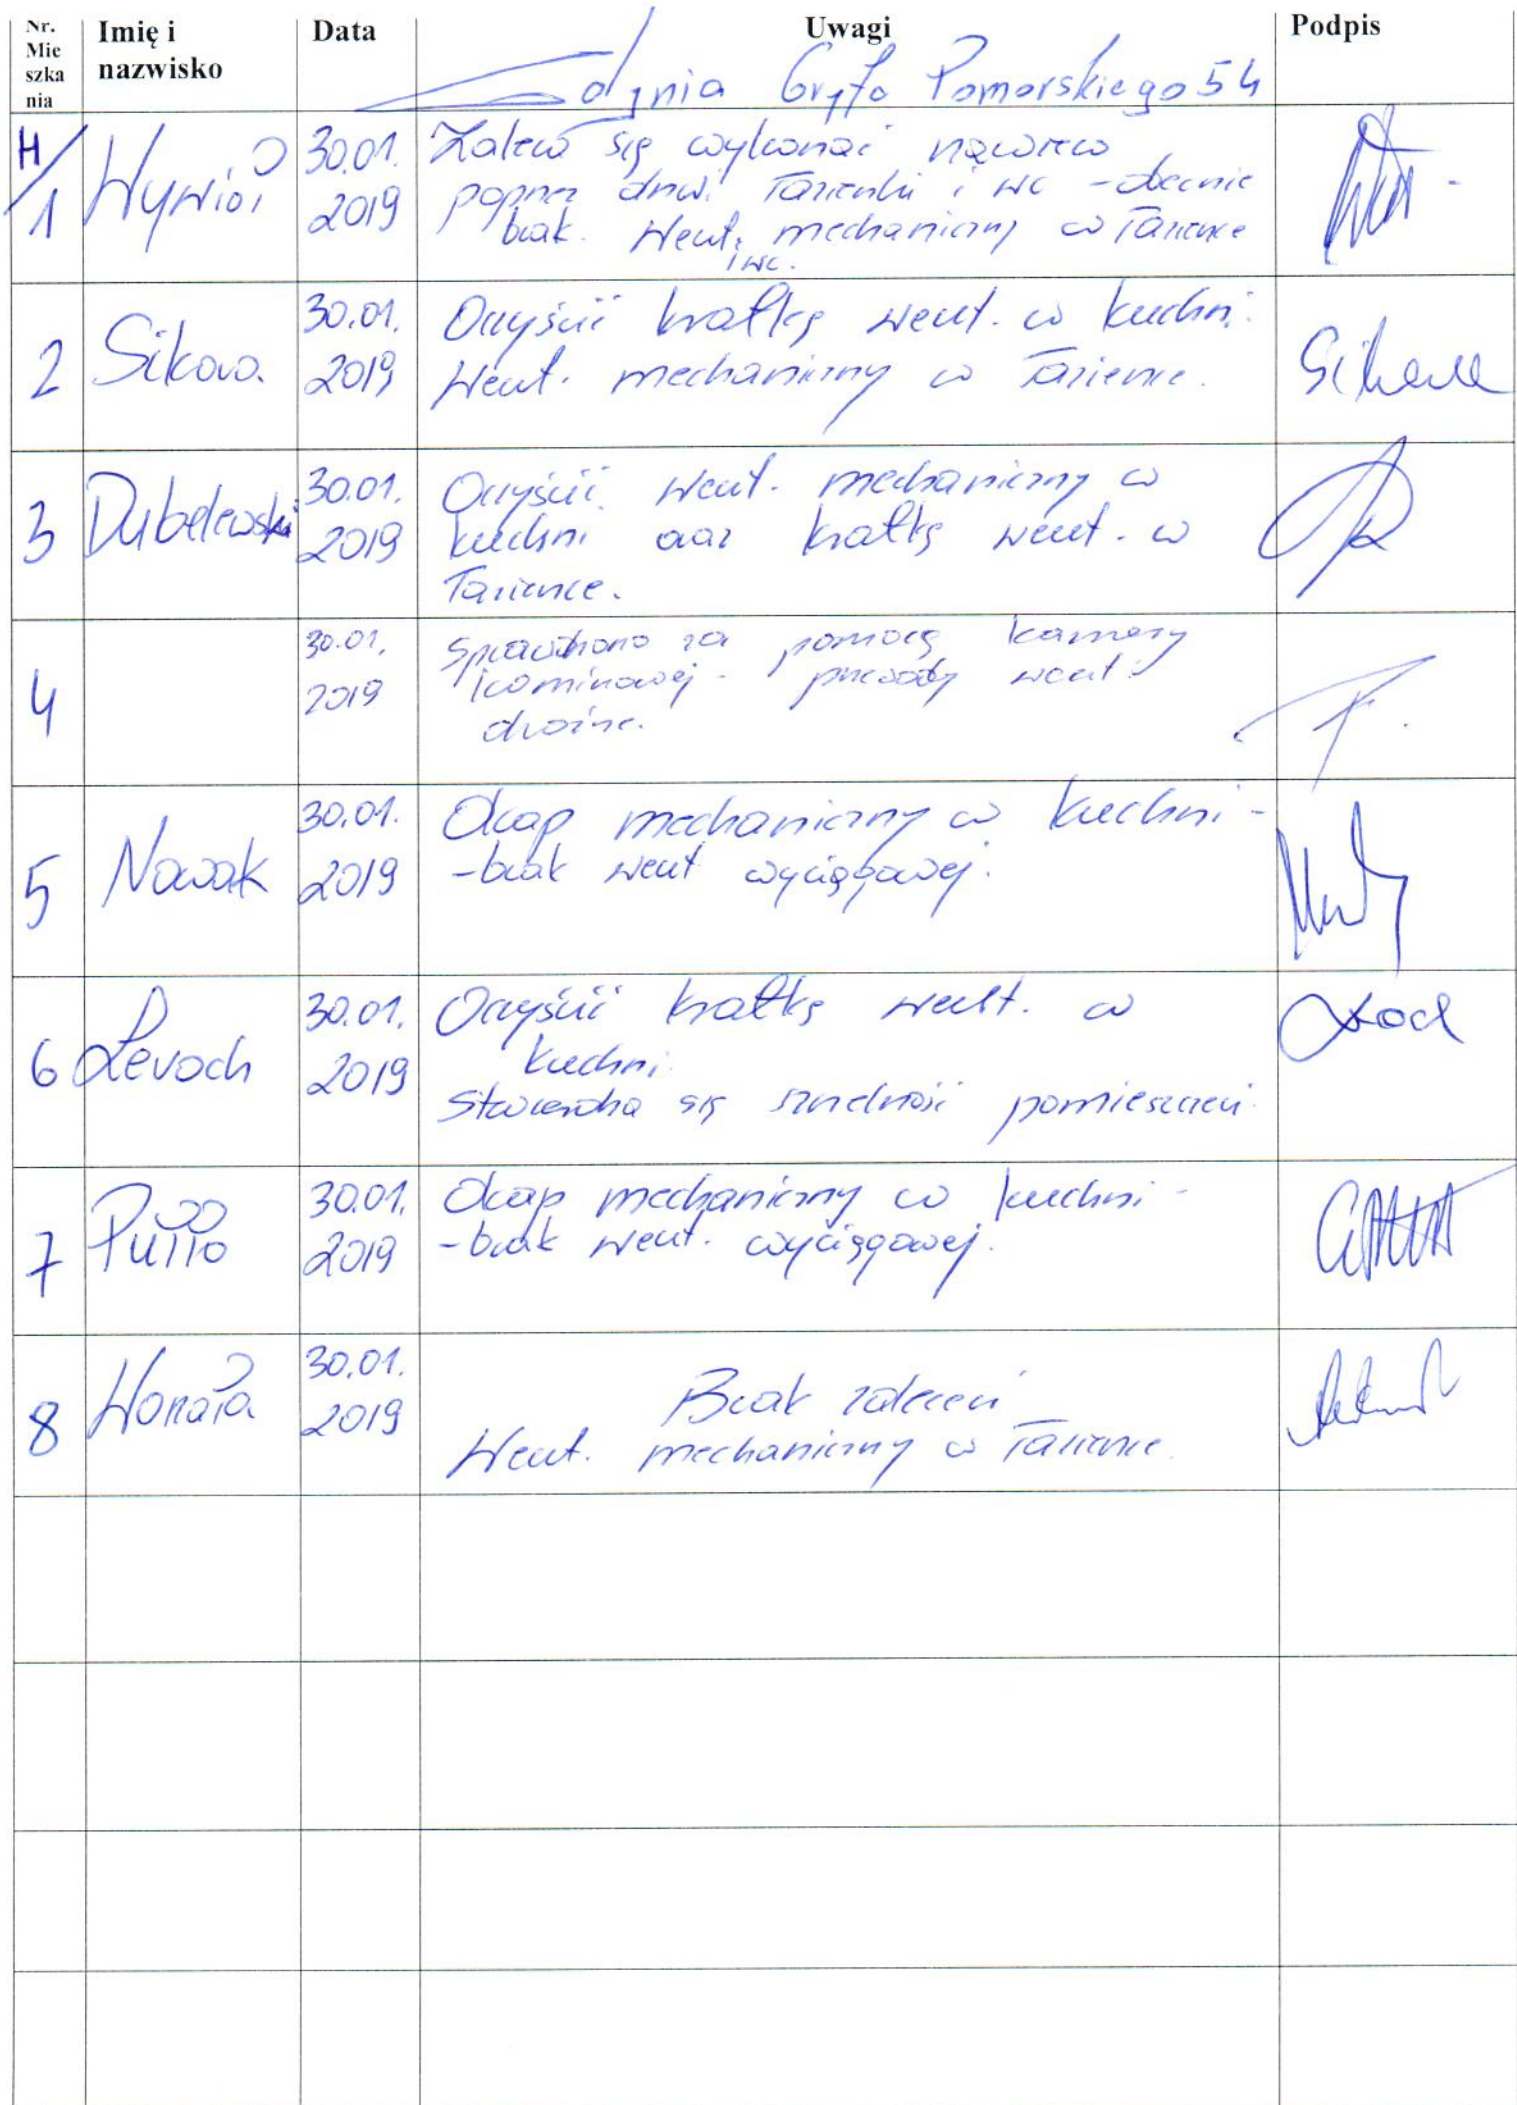 Nr. Mie szka nia
Imię i nazwisko
Data
Uwagi
Podpis
Gdynia Gryfa Pomorskiego 54
H/1
30.01. 2019
Zaleca się wykonać nawiew
poprzez drzwi łazienki i wc - obecnie
brak. Went. mechaniczny w łazience
i wc.
2 Sikora
30.01. 2019
Oczyścić kratkę went. w kuchni.
Went. mechaniczny w łazience.
3 Dubelewski
30.01. 2019
Oczyścić went. mechaniczny w
kuchni oraz kratkę went. w
łazience.
4
30.01. 2019
Sprawdzono za pomocą kamery
kominowej - przewody went.
drożne.
5 Nowak
30.01. 2019
Okap mechaniczny w kuchni -
- brak went wyciągowej.
6
30.01. 2019
Oczyścić kratkę went. w
kuchni.
Stwierdza się szczelność pomieszczeń
7
30.01. 2019
Okap mechaniczny w kuchni -
- brak went. wyciągowej.
8
30.01. 2019
Brak zaleceń
Went. mechaniczny w łazience.